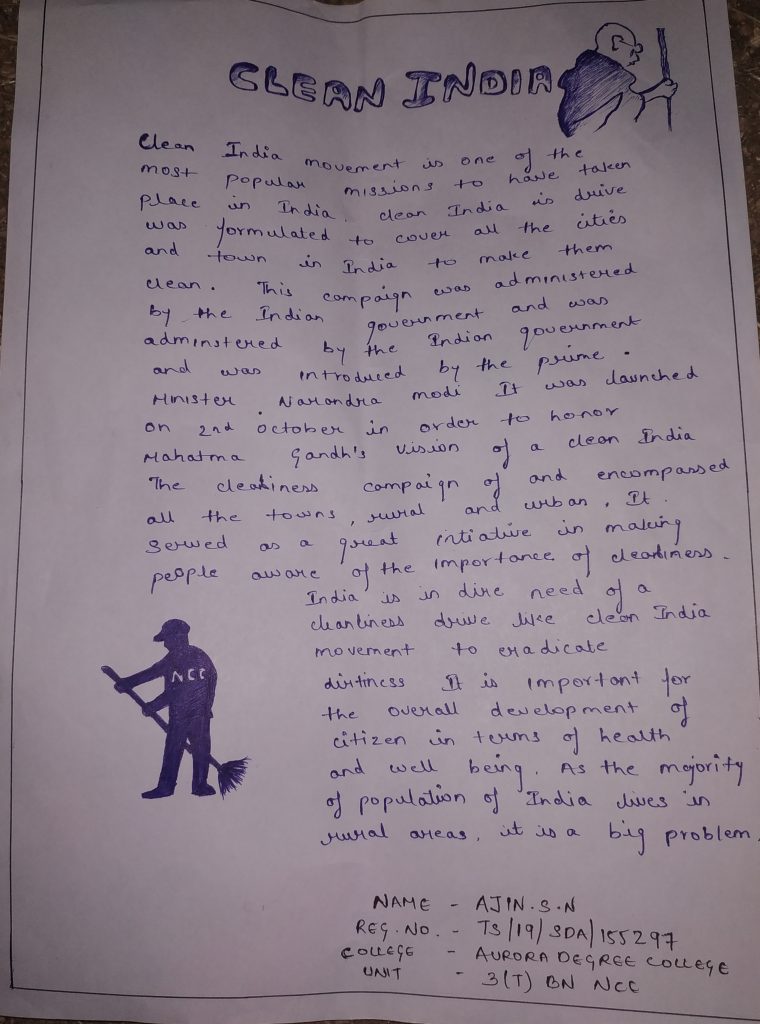 CLEAN INDIA
Clean India movement is one of the
most popular missions to have taken
place in India. clean India is drive
was formulated to cover all the cities
and town in India to make them
clean. This campaign was administered
by the Indian government and was
adminstered by the Indian government
and was introduced by the prime.
Minister. Narondra modi It was launched
on 2nd october in order to honor
Mahatma Gandh's vision of a clean India
The cleakiness campaign of and encompassed
all the towns, rural and urban. It.
Served as a great intiative in making
people aware of the importance of clearliness.
India is in dire need of a
cleanliness drive like clean India
movement to eradicate
dirtiness It is important for
the overall development of
citizen in terms of health
and well being. As the majority
of population of India lives in
rural areas, it is a big problem.
NCC
NAME - AJIN.S.N
REG.NO. - TS/19/SDA/155297
COLLEGE - AURORA DEGREE COLLEGE
UNIT - 3(T) BN NCC